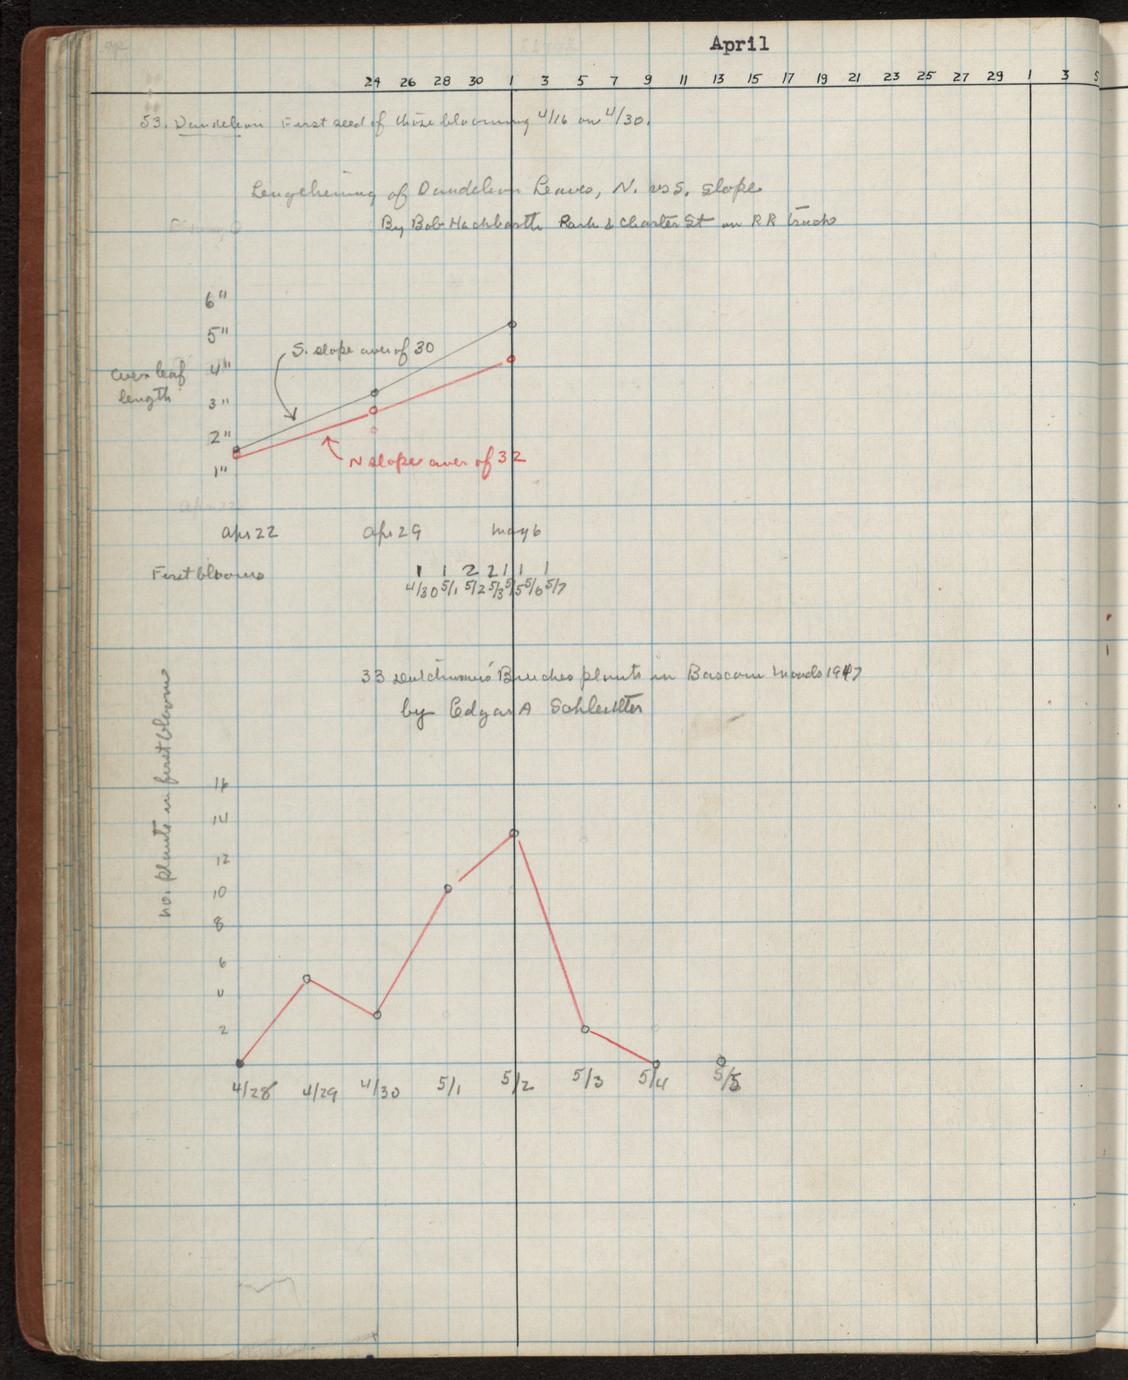 April
24 26 28 30 1 3 5 7 9 11 13 15 17 19 21 23 25 27 29 1 3 5
53. Dandelion First seed of those blooming 4/16 on 4/30.
Lengthening of Dandelion Leaves, N. vs S. slope
By Bob Hachbarth Park & Charter St on RR tracks
6"
5"
S. slope aver of 30
4"
aver leaf
length
3"
2"
N slope aver of 32
1"
Apr 22 Apr 29 May 6
First blooms 1 1 2 2 1 1 1
4/30 5/1 5/2 5/3 5/5 5/6 5/7
33 Dutchman's Breeches plants in Bascom Woods 1947
by Edgar A
no. plants in first bloom
16
14
12
10
8
6
4
2
4/28 4/29 4/30 5/1 5/2 5/3 5/4 5/5